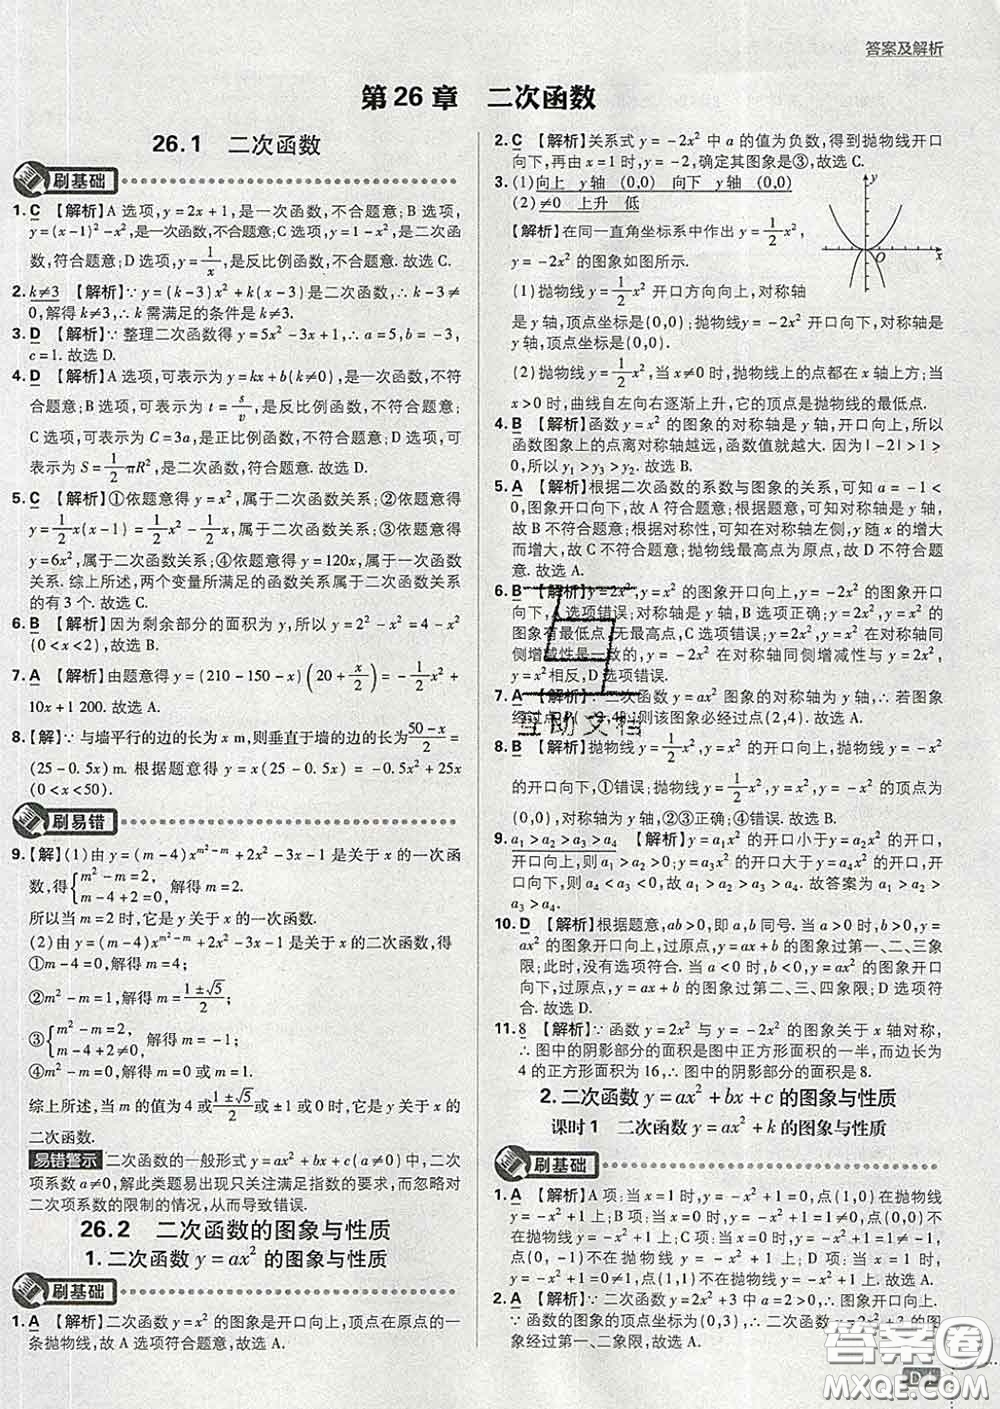 答案及解析
第26章 二次函数
26.1 二次函数
刷基础
1. C 【解析】A 选项,y=2x+1,是一次函数,不合题意;B 选项,
y=(x-1)²-x²,是一次函数,不合题意;C 选项,y=1-x²,是二次函
数,符合题意;D 选项,y=1/x,是反比例函数,不合题意.故选 C.
2. k≠3 【解析】∵ y=(k-3)x²+k(x-3)是二次函数,∴ k-3≠
0,解得 k≠3,∴ k 需满足的条件是 k≠3.
3. D 【解析】∵ 整理二次函数得 y=5x²-3x+1,∴ a=5,b=-3,
c=1.故选 D.
4. D 【解析】A 选项,可表示为 y=kx+b(k≠0),是一次函数,不符
合题意;B 选项,可表示为 t=s/v,是反比例函数,不符合题意;
C 选项,可表示为 C=3a,是正比例函数,不符合题意;D 选项,可
表示为 S=1/2πR²,是二次函数,符合题意.故选 D.
5. C 【解析】①依题意得 y=x²,属于二次函数关系;②依题意得
y=1/2x(x-1)=1/2x²-1/2x,属于二次函数关系;③依题意得
y=6x²,属于二次函数关系;④依题意得 y=120x,属于一次函数关
系.综上所述,两个变量所满足的函数关系属于二次函数关系
的有 3 个.故选 C.
6. B 【解析】因为剩余部分的面积为 y,所以 y=2²-x²=4-x²
(0<x<2),故选 B.
7. A 【解析】由题意得 y=(210-150-x)(20+x/2)=-1/2x²+
10x+1 200.故选 A.
8.【解】∵ 与墙平行的边的长为 x m,则垂直于墙的边的长为(50-x)/2=
(25-0.5x)m.根据题意得 y=x(25-0.5x)=-0.5x²+25x
(0<x<50).
刷易错
9.【解】(1)由 y=(m-4)x^(m²-m)+2x²-3x-1 是 x 的一次函
数,得{m²-m=2, m-4+2=0, 解得 m=2.
所以当 m=2 时,它是 y 关于 x 的一次函数.
(2)由 y=(m-4)x^(m²-m)+2x²-3x-1 是关于 x 的二次函数,得
①m-4=0,解得 m=4;
②m²-m=1,解得 m=(1±√5)/2;
③{m²-m=2, m-4+2≠0, 解得 m=-1;
④m²-m=0,解得 m=0 或 m=1.
综上所述,当 m 的值为 4 或(1±√5)/2或-1 或 0 或 1 时,它是 y 关于 x 的
二次函数.
易错警示 二次函数的一般形式 y=ax²+bx+c(a≠0)中,二次
项系数 a≠0,解此类题易出现只关注满足指数的要求,而忽略对
二次项系数的限制的情况,从而导致错误.
26.2 二次函数的图象与性质
1.二次函数 y=ax² 的图象与性质
刷基础
1. A 【解析】二次函数 y=x² 的图象是开口向上,顶点在原点的一
条抛物线.故 A 选项符合题意.故选 A.
2. C 【解析】关系式 y=-2x² 中 a 的值为负数,得到抛物线开口
向下,再由 x=1 时,y=-2,确定其图象是③,故选 C.
3. (1)向上 y 轴 (0,0) 向下 y 轴 (0,0)
(2)≠0 上升 低
【解析】在同一直角坐标系中作出 y=1/2x²,
y=-2x² 的图象如图所示.
y
O
x
(1)抛物线 y=1/2x² 开口方向向上,对称轴
是 y 轴,顶点坐标是(0,0);抛物线 y=-2x² 开口向下,对称轴为
y 轴,顶点坐标是(0,0).
(2)抛物线 y=1/2x²,当 x≠0 时,抛物线上的点都在 x 轴上方;当
x>0 时,曲线自左向右逐渐上升,它的顶点是抛物线的最低点.
4. B 【解析】函数 y=x² 的图象的对称轴是 y 轴,开口向上,所以
函数图象上的点离对称轴越远,函数值就越大.因为|-2|>1>
0,所以 y₁>y₃>y₂.故选 B.
5. A 【解析】根据二次函数的系数与图象的关系,可知 a=-1<
0,图象开口向下,故 A 符合题意;根据题意,可知对称轴为 y 轴,
故 B 不符合题意;根据对称性,可知在对称轴左侧,y 随 x 的增大
而增大,故 C 不符合题意;抛物线最高点为原点,故 D 不符合
题意.故选 A.
6. B 【解析】y=2x²,y=x² 的图象开口向上,y=-x² 的图象开口
向下,A 选项错误;对称轴是 y 轴,B 选项正确;y=2x²,y=x² 的
图象有最低点,无最高点,C 选项错误;y=2x²,y=x² 在对称轴同
侧增减性是一致的,y=-x² 在对称轴同侧增减性与 y=2x²,
y=x² 相反,D 选项错误.
7. A 【解析】∵ 二次函数 y=ax² 图象的对称轴为 y 轴,∴ 若图象
经过点 P(-2,4),则该图象必经过点(2,4).故选 A.
8. B 【解析】抛物线 y=1/2x²,y=x² 的开口向上,抛物线 y=-x²
的开口向下,①错误;抛物线 y=1/2x²,y=x²,y=-x² 的顶点为
(0,0),对称轴为 y 轴,②③正确;④错误.故选 B.
9. a₁>a₂>a₃>a₄ 【解析】y=a₁x² 的开口小于 y=a₂x² 的开口,
开口向上,所以 a₁>a₂>0;y=a₃x² 的开口大于 y=a₄x² 的开口,开口向
下,所以 a₄<a₃<0,所以 a₁>a₂>a₃>a₄.故答案为 a₁>a₂>
a₃>a₄.
10. D 【解析】根据题意,ab>0,即 a,b 同号.当 a>0 时,b>0,y=
ax² 的图象开口向上,过原点,y=ax+b 的图象过第一、二、三象
限;此时,没有选项符合.当 a<0 时,b<0,y=ax² 的图象开口
向下,过原点,y=ax+b 的图象过第二、三、四象限;D 选项符
合.故选 D.
11. 8 【解析】∵ 函数 y=2x² 与 y=-2x² 的图象关于 x 轴对称,
∴ 图中的阴影部分的面积是图中正方形面积的一半,而边长为
4 的正方形面积为 16,∴ 图中的阴影部分的面积是 8.
2.二次函数 y=ax²+bx+c 的图象与性质
课时1 二次函数 y=ax²+k 的图象与性质
刷基础
1. A 【解析】A 项:当 x=1 时,y=-x²+1=0,点(1,0)在抛物线
y=-x²+1 上;B 项:当 x=0 时,y=-x²+1=1≠0,点(0,0)不
在抛物线 y=-x²+1 上;C 项:当 x=0 时,y=-x²+1=1≠-1,
点(0,-1)不在抛物线 y=-x²+1 上;D 项:当 x=1 时,
y=-x²+1=0≠1,点(1,1)不在抛物线 y=-x²+1 上.故选 A.
2. A 【解析】二次函数 y=2x²+3 中,2>0,∴ 图象开口向上.
∵ 函数的图象的顶点坐标为(0,3),∴ 二次函数 y=2x²+3 的图
象经过第一、二象限,故选 A.
互助文档
答案圈
MXQE.COM